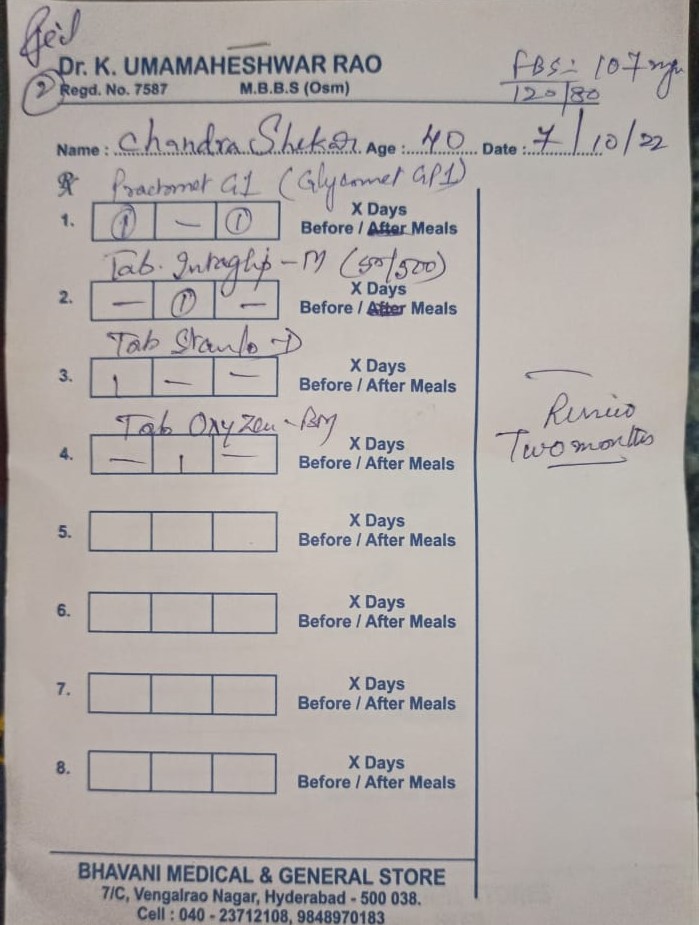 ②
Dr. K. UMAMAHESHWAR RAO
Regd. No. 7587 M.B.B.S (Osm)
FBS:- 107
120/80
Name : Chandra Shekar Age : 40 Date : 7/10/22
Practomet G1 (Glycomet GP1)
1. ① — ① X Days
Before / After Meals
Tab. Intaglip - M (50/500)
2. — ① — X Days
Before / After Meals
Tab Stamlo - D
3. 1 — — X Days
Before / After Meals
Tab Oxyzen - BM
4. — 1 — X Days
Before / After Meals
Review
Two months
5. X Days
Before / After Meals
6. X Days
Before / After Meals
7. X Days
Before / After Meals
8. X Days
Before / After Meals
BHAVANI MEDICAL & GENERAL STORE
7/C, Vengalrao Nagar, Hyderabad - 500 038.
Cell : 040 - 23712108, 9848970183